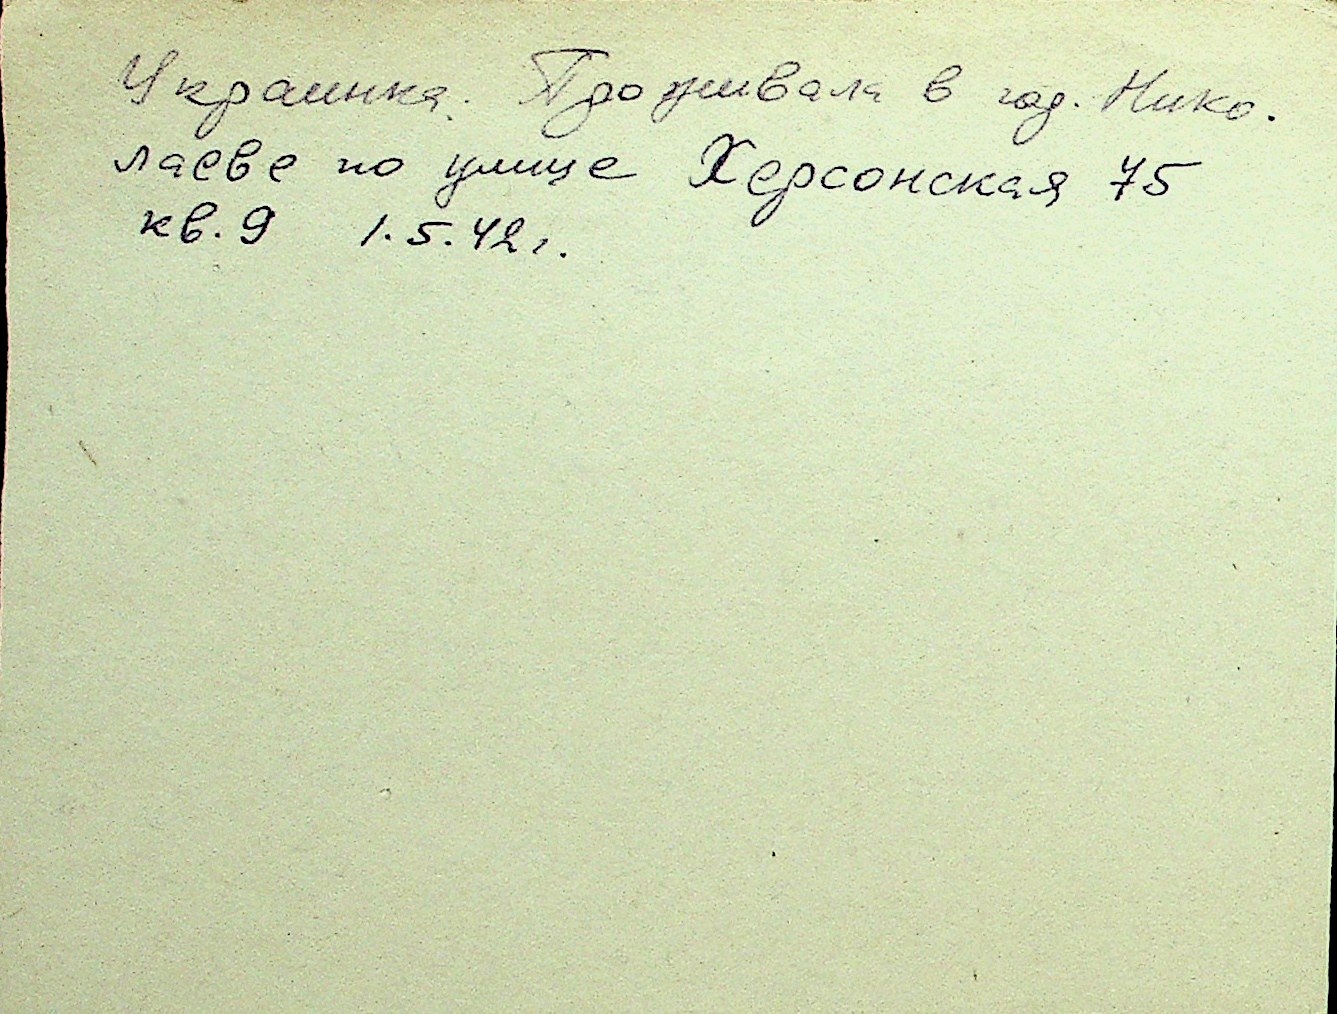 Украинка. Проживала в гор. Нико.
лаеве по улице Херсонская 75
кв. 9 1.5.42 г.